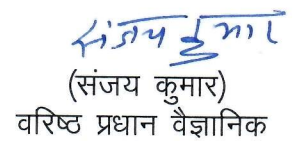 संजय कुमार
(संजय कुमार)
वरिष्ठ प्रधान वैज्ञानिक